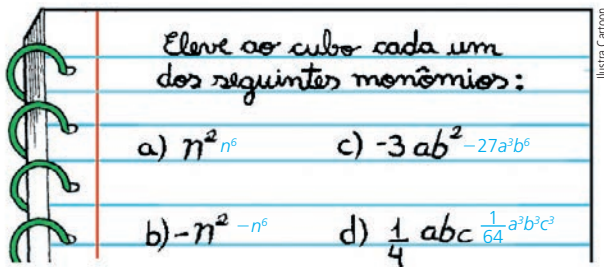 Eleve ao cubo cada um
dos seguintes monômios:
a) n² n⁶
c) -3 ab² -27a³b⁶
b) -n² -n⁶
d) 1/4 abc 1/64 a³b³c³
Ilustra Cartoon